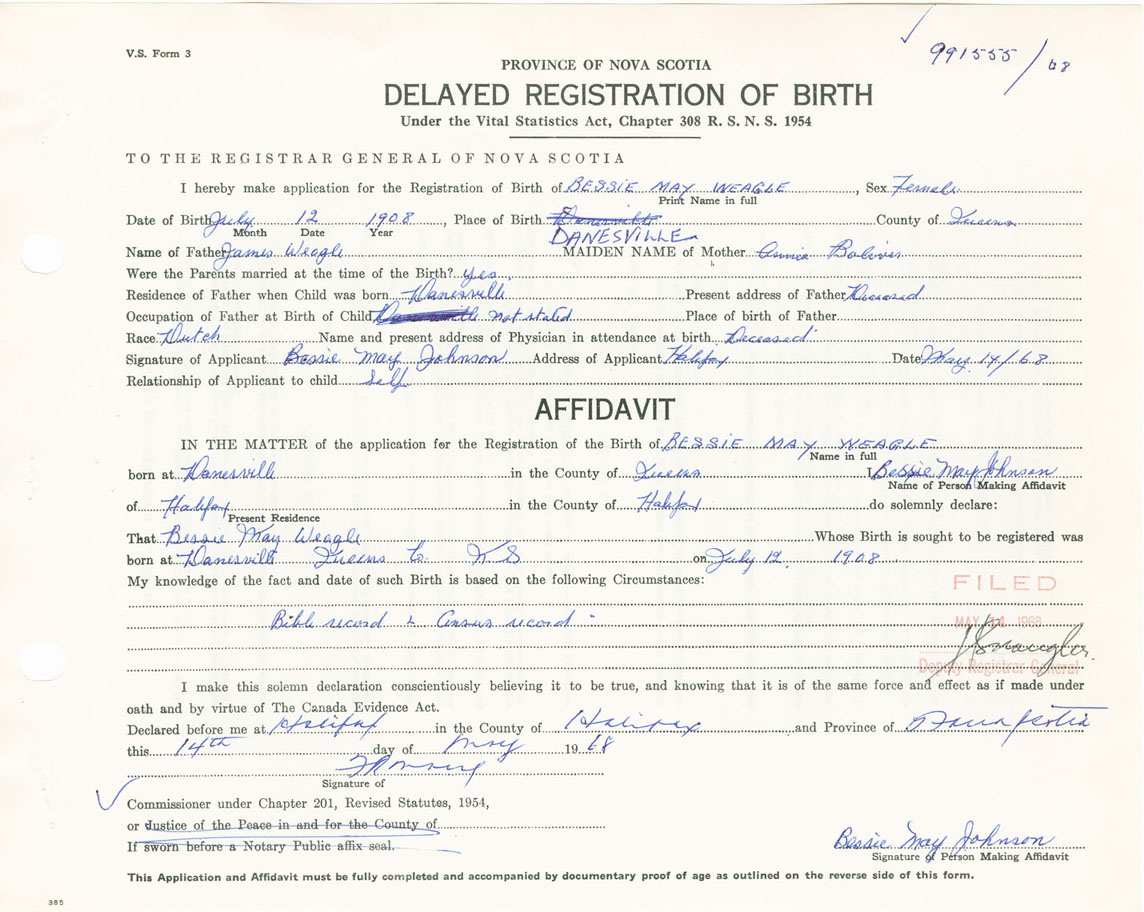 V.S. Form 3
991555/68
PROVINCE OF NOVA SCOTIA
DELAYED REGISTRATION OF BIRTH
Under the Vital Statistics Act, Chapter 308 R. S. N. S. 1954
TO THE REGISTRAR GENERAL OF NOVA SCOTIA
I hereby make application for the Registration of Birth of BESSIE MAY WEAGLE, Sex Female
Print Name in full
Date of Birth July 12 1908, Place of Birth Danesville County of Queens
Month Date Year DANESVILLE
Name of Father James Weagle MAIDEN NAME of Mother Annie Boliver
Were the Parents married at the time of the Birth? yes
Residence of Father when Child was born Danesville Present address of Father Deceased
Occupation of Father at Birth of Child not stated Place of birth of Father
Race Dutch Name and present address of Physician in attendance at birth Deceased
Signature of Applicant Bessie May Johnson Address of Applicant Halifax Date May 14/68
Relationship of Applicant to child Self
AFFIDAVIT
IN THE MATTER of the application for the Registration of the Birth of BESSIE MAY WEAGLE
Name in full
born at Danesville in the County of Queens I Bessie May Johnson
Name of Person Making Affidavit
of Halifax in the County of Halifax do solemnly declare:
Present Residence
That Bessie May Weagle Whose Birth is sought to be registered was
born at Danesville Queens Co. N S on July 12, 1908
My knowledge of the fact and date of such Birth is based on the following Circumstances:
FILED
Bible record & Census record
MAY 14 1968
Deputy Registrar General
I make this solemn declaration conscientiously believing it to be true, and knowing that it is of the same force and effect as if made under
oath and by virtue of The Canada Evidence Act.
Declared before me at Halifax in the County of Halifax and Province of Nova Scotia
this 14th day of May 1968
Signature of
Commissioner under Chapter 201, Revised Statutes, 1954,
or Justice of the Peace in and for the County of
If sworn before a Notary Public affix seal.
Bessie May Johnson
Signature of Person Making Affidavit
This Application and Affidavit must be fully completed and accompanied by documentary proof of age as outlined on the reverse side of this form.
385